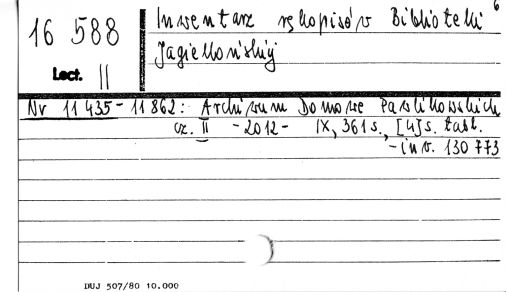 6
Inwentarz rękopisów Biblioteki
16 588
Jagiellońskiej
Lect. II
Nr 11 435 - 11 862: Archiwum Domowe Pawlikowskich
cz. II - 2012 - IX, 361 s., [4] s. tabl.
- inw. 130 773
DUJ 507/80 10.000